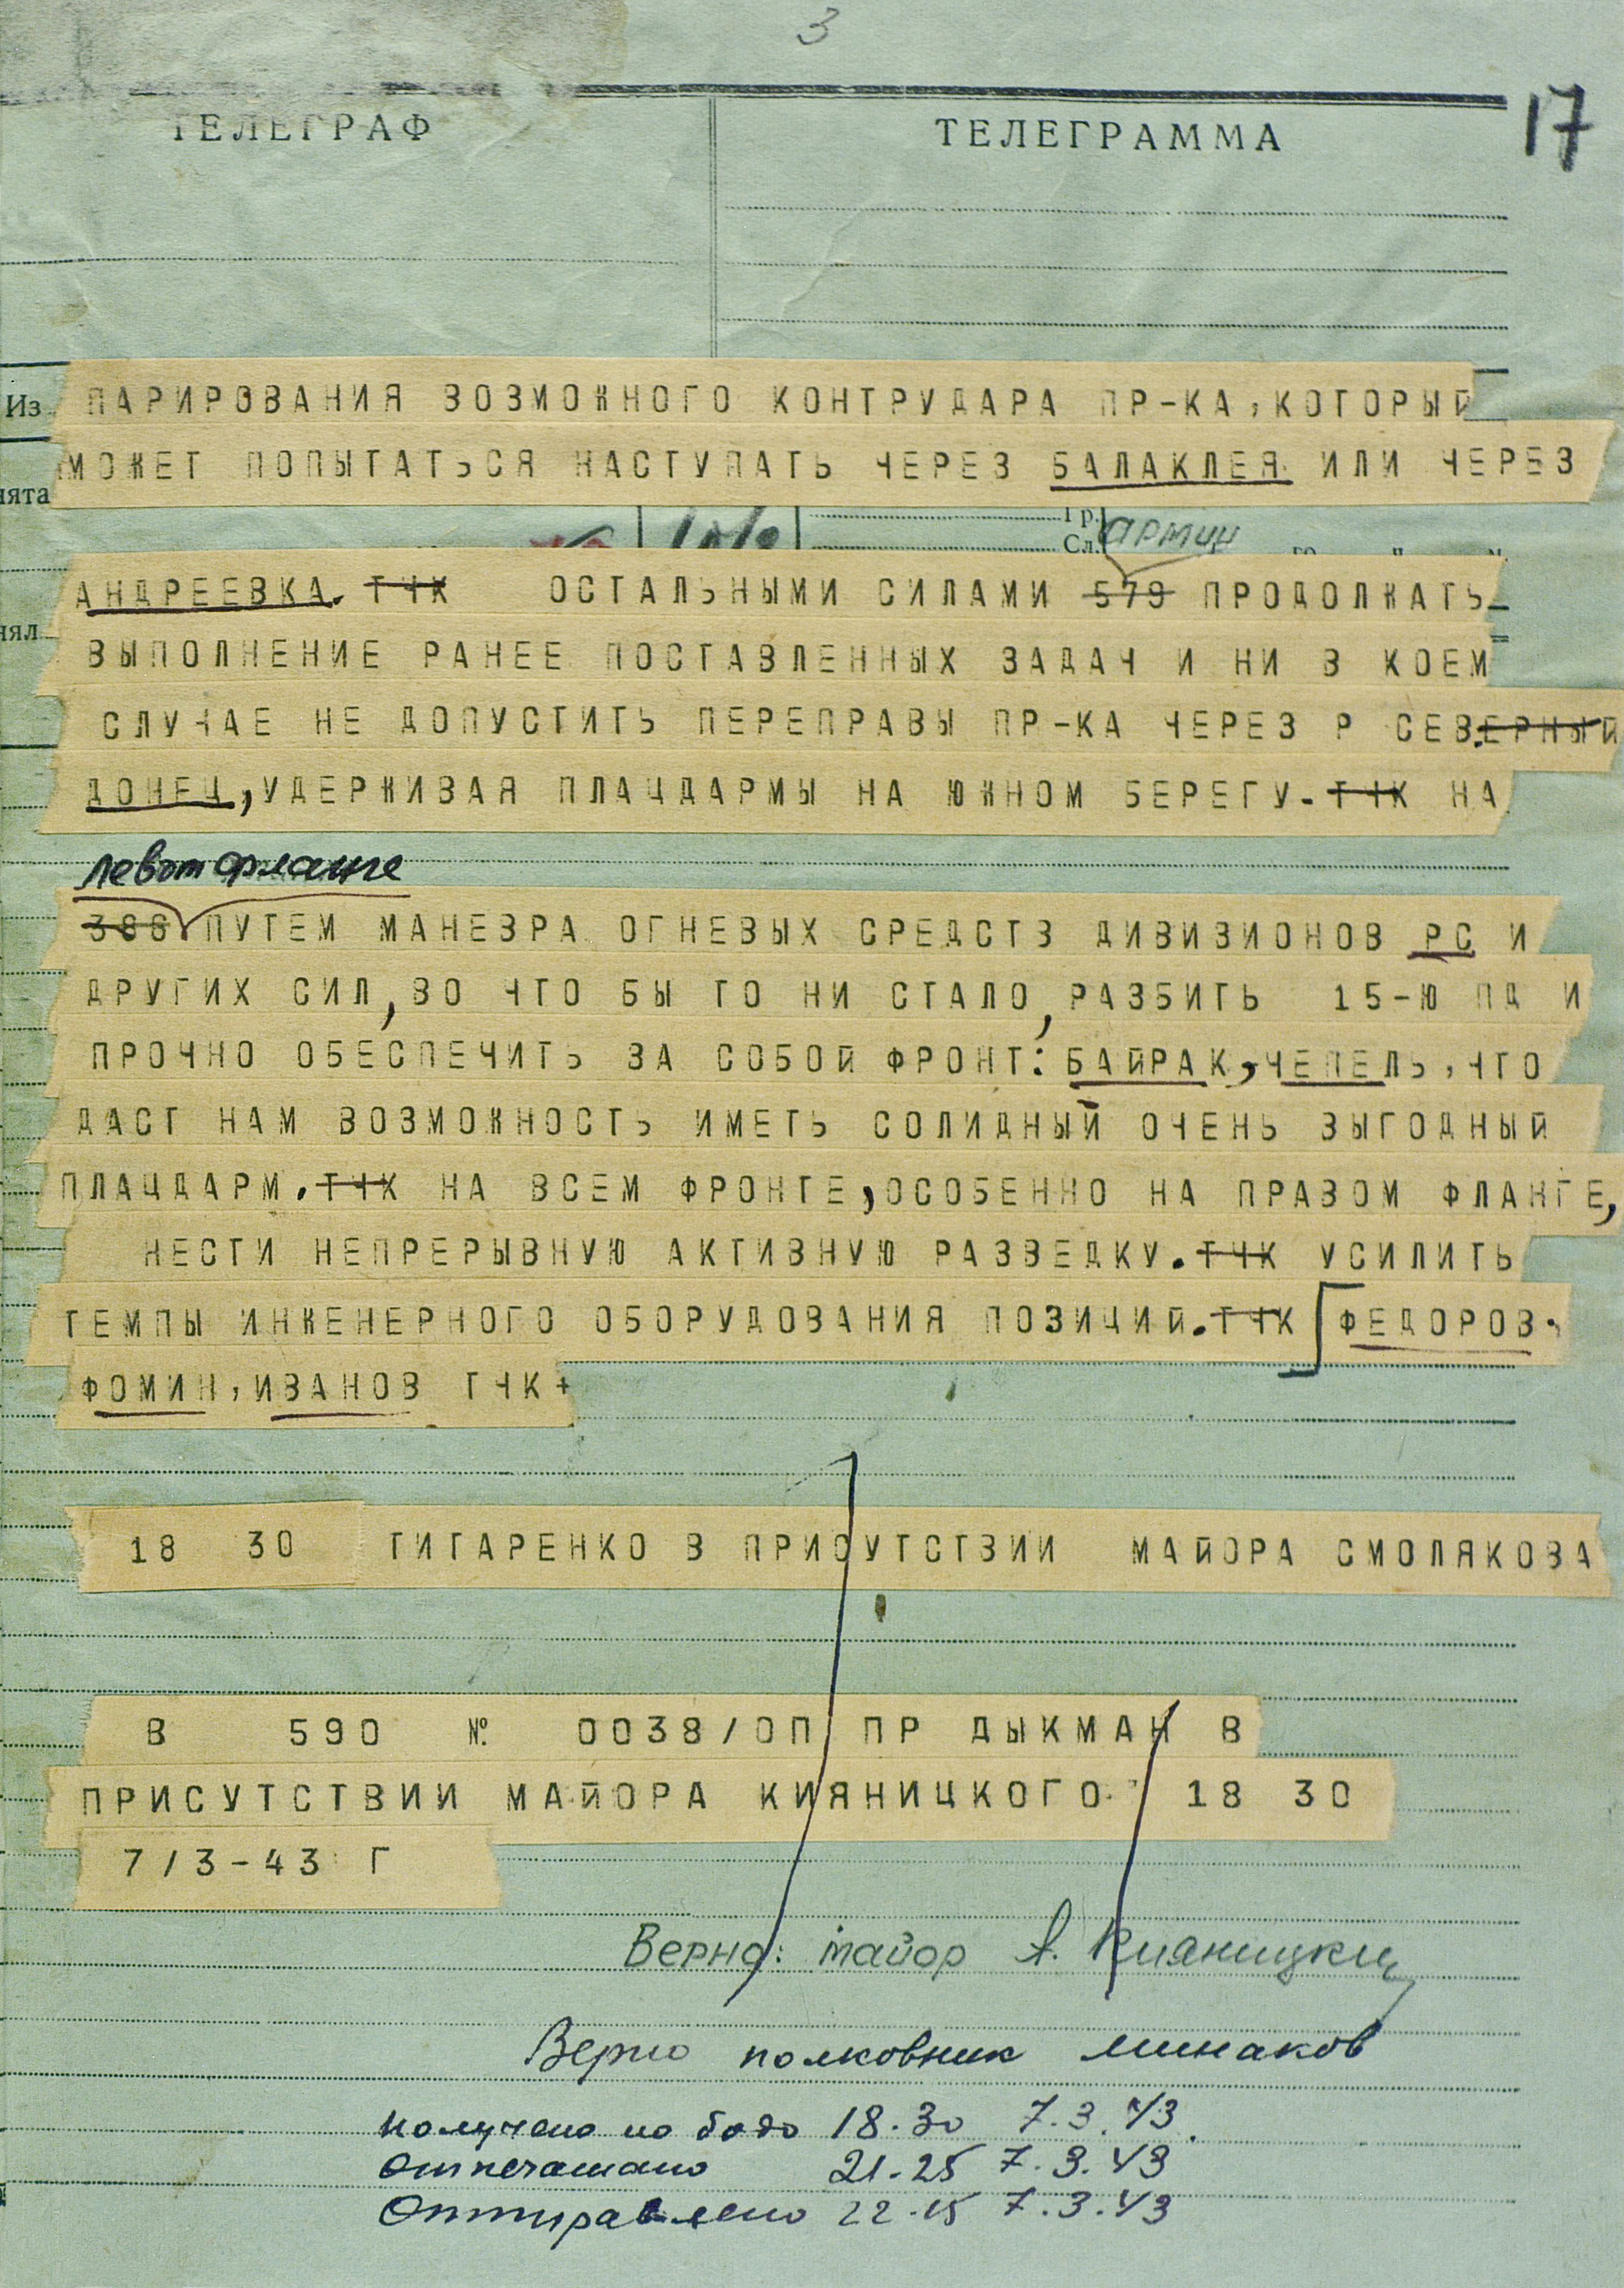 3
17
ТЕЛЕГРАФ
ТЕЛЕГРАММА
Из ПАРИРОВАНИЯ ВОЗМОЖНОГО КОНТРУДАРА ПР-КА, КОТОРЫЙ
МОЖЕТ ПОПЫТАТЬСЯ НАСТУПАТЬ ЧЕРЕЗ БАЛАКЛЕЯ ИЛИ ЧЕРЕЗ
нята
Гр.
Сл.
армии
АНДРЕЕВКА. ТЧК ОСТАЛЬНЫМИ СИЛАМИ 579 ПРОДОЛЖАТЬ
нял
ВЫПОЛНЕНИЕ РАНЕЕ ПОСТАВЛЕННЫХ ЗАДАЧ И НИ В КОЕМ
СЛУЧАЕ НЕ ДОПУСТИТЬ ПЕРЕПРАВЫ ПР-КА ЧЕРЕЗ Р СЕВ.ЕРНЫЙ
ДОНЕЦ, УДЕРЖИВАЯ ПЛАЦДАРМЫ НА ЮЖНОМ БЕРЕГУ. ТЧК НА
левом фланге
386 ПУТЕМ МАНЕВРА ОГНЕВЫХ СРЕДСТВ ДИВИЗИОНОВ РС И
ДРУГИХ СИЛ, ВО ЧТО БЫ ТО НИ СТАЛО, РАЗБИТЬ 15-Ю ПД И
ПРОЧНО ОБЕСПЕЧИТЬ ЗА СОБОЙ ФРОНТ: БАЙРАК, ЧЕПЕЛЬ, ЧТО
ДАСТ НАМ ВОЗМОЖНОСТЬ ИМЕТЬ СОЛИДНЫЙ ОЧЕНЬ ВЫГОДНЫЙ
ПЛАЦДАРМ. ТЧК НА ВСЕМ ФРОНТЕ, ОСОБЕННО НА ПРАВОМ ФЛАНГЕ,
НЕСТИ НЕПРЕРЫВНУЮ АКТИВНУЮ РАЗВЕДКУ. ТЧК УСИЛИТЬ
ТЕМПЫ ИНЖЕНЕРНОГО ОБОРУДОВАНИЯ ПОЗИЦИЙ. ТЧК ФЕДОРОВ,
ФОМИН, ИВАНОВ ТЧК+
18 30 ТИТАРЕНКО В ПРИСУТСТВИИ МАЙОРА СМОЛЯКОВА
В 590 № 0038/ОП ПР ДЫКМАН В
ПРИСУТСТВИИ МАЙОРА КИЯНИЦКОГО 18 30
7/3-43 Г
Верно: майор А. Кияницкий
Верно полковник Минаков
получено по бодо 18.30 7.3.43.
Отпечатано 21.25 7.3.43
Отправлено 22.15 7.3.43